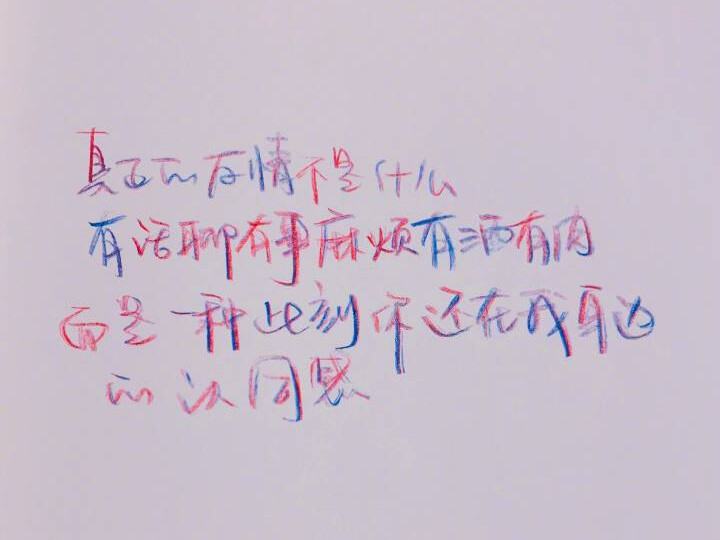 真正的友情不是什么
有话聊有事麻烦有酒有肉
而是一种此刻你还在我身边
的认同感